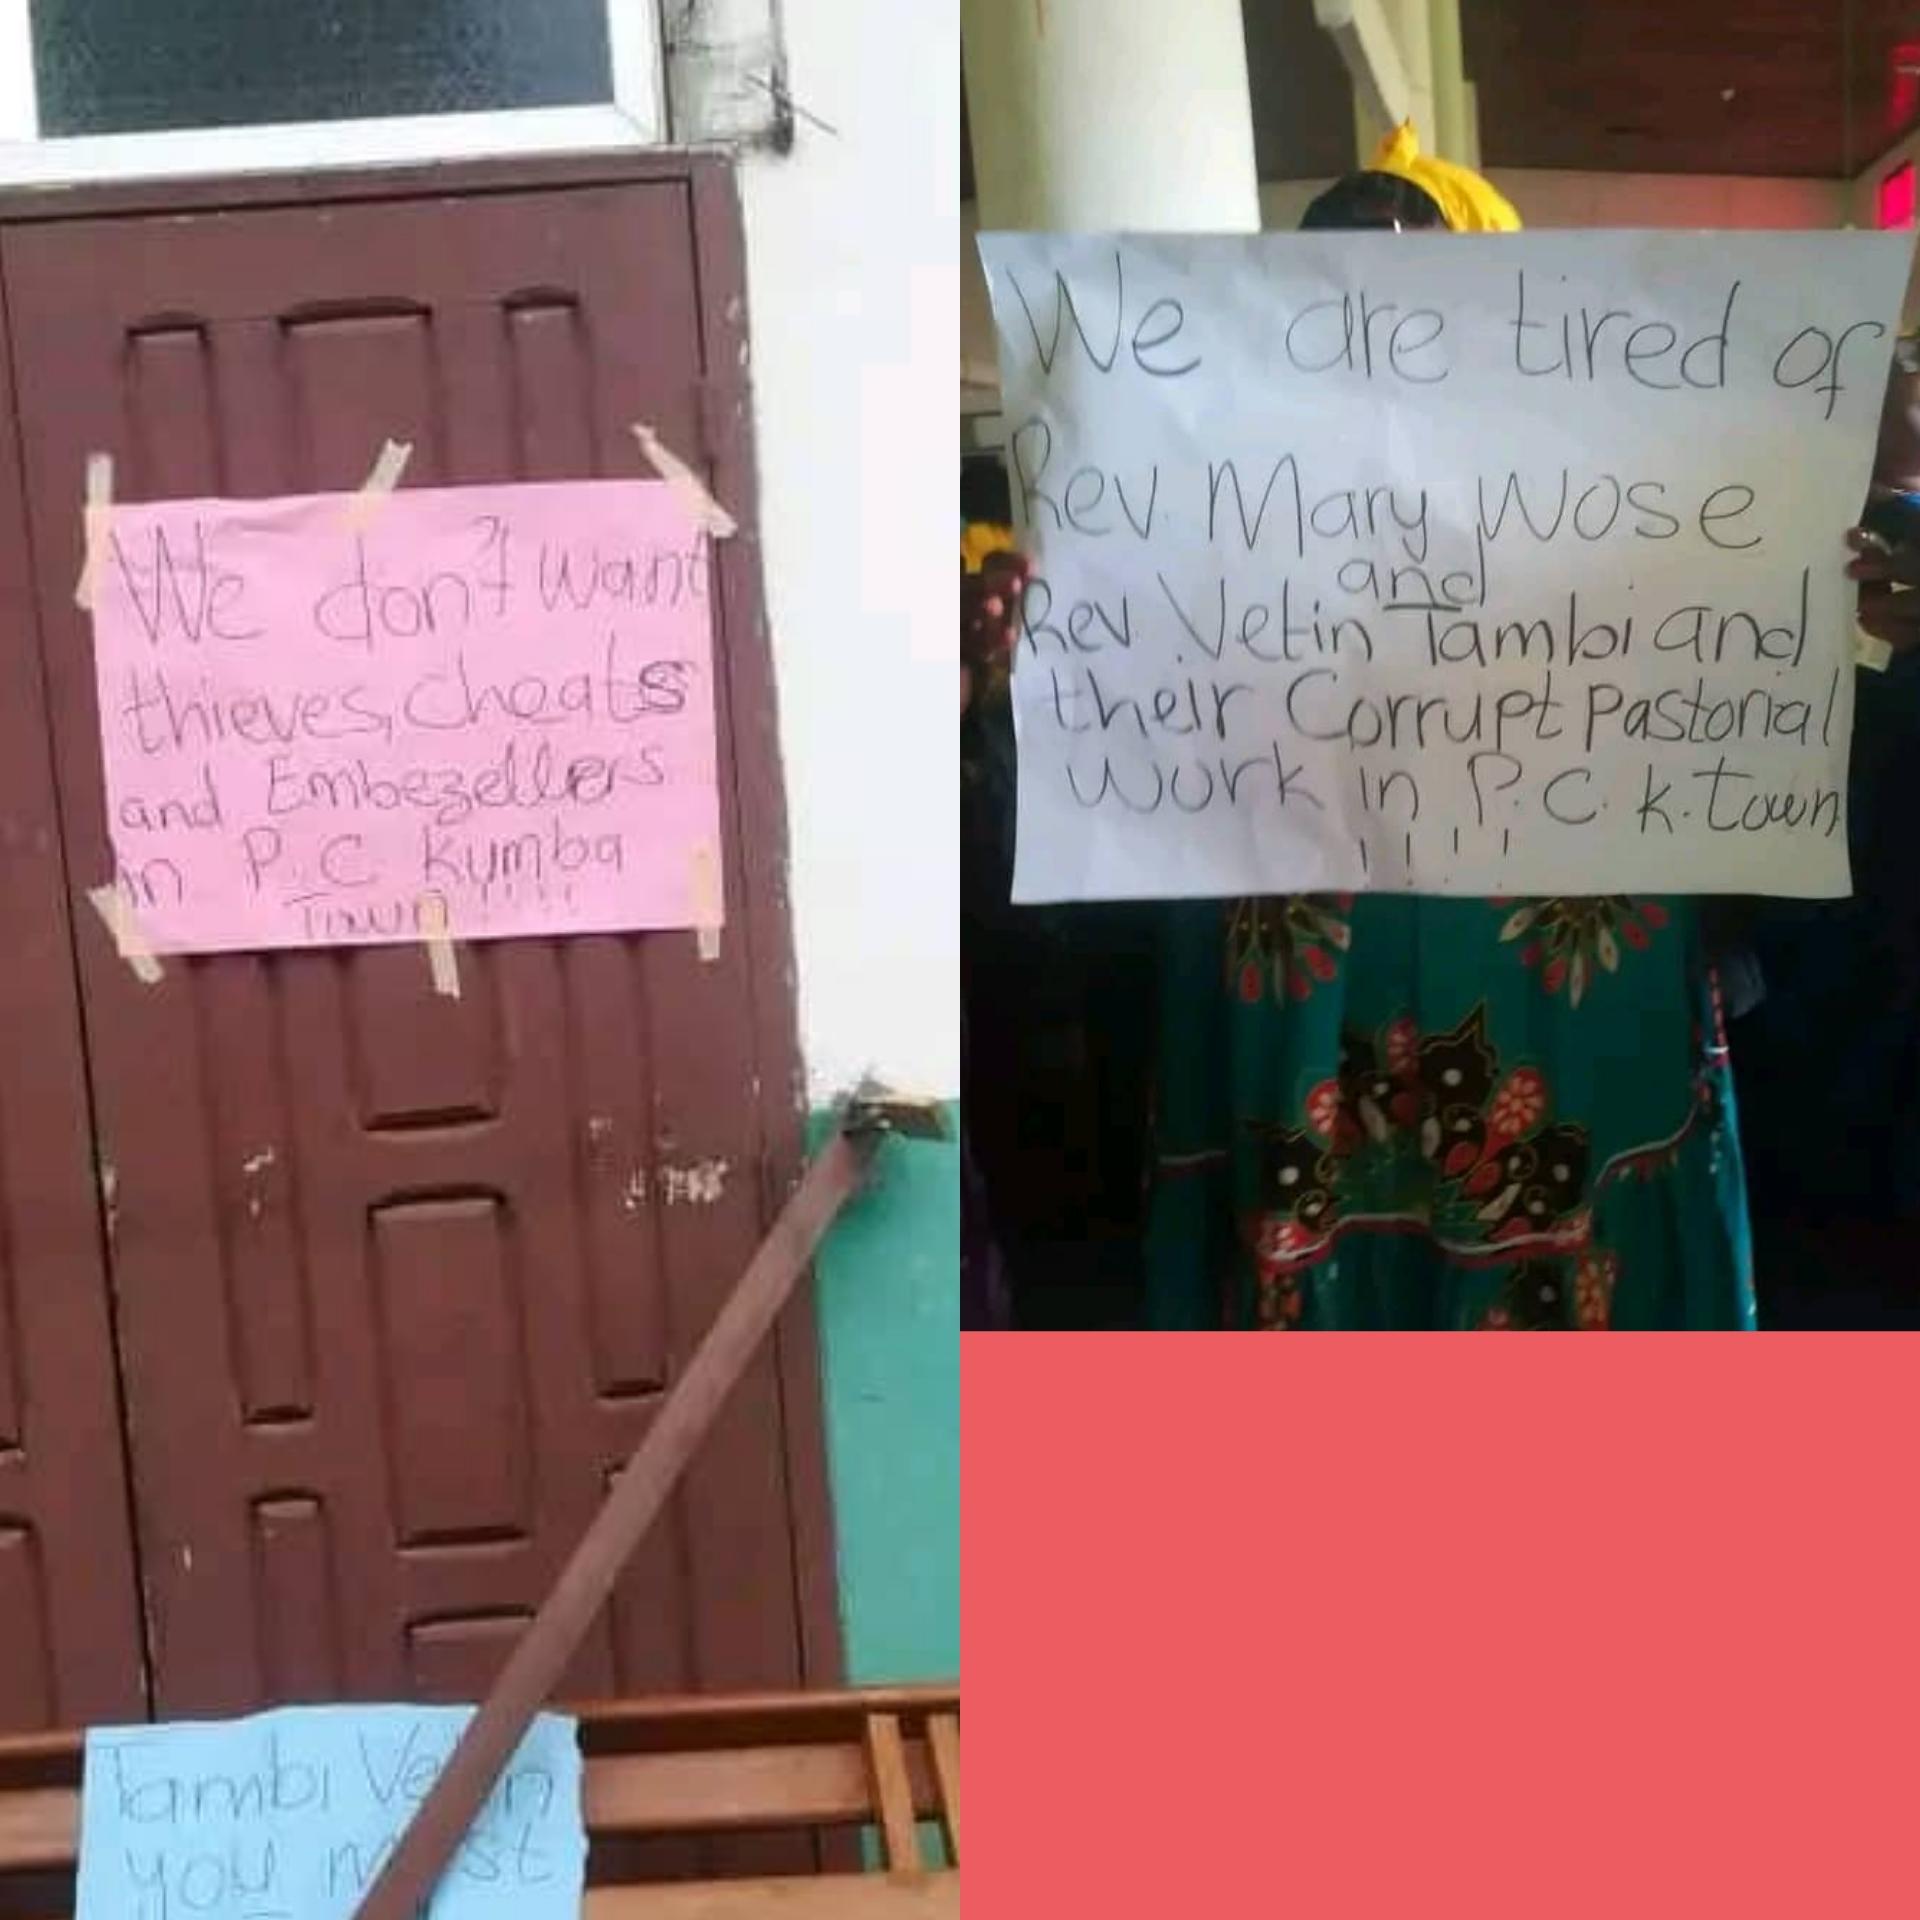 We don't want
thieves, cheats
and Embezellers
in P.C Kumba
Town !!!!
Tambi
you must
We are tired of
Rev. Mary Wose
and
Rev. Vetin Tambi and
their Corrupt Pastorial
work in P.C. K. Town
!!!!